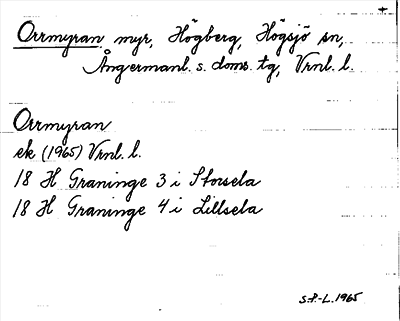 Orrmyran myr, Högberg, Högsjö sn,
Ångermanl. s. doms. tg, Vrnl. l.
Orrmyran
ek (1965) Vrnl. l.
18 H Graninge 3 i Storsela
18 H Graninge 4 i Lillsela
S.P.-L. 1965